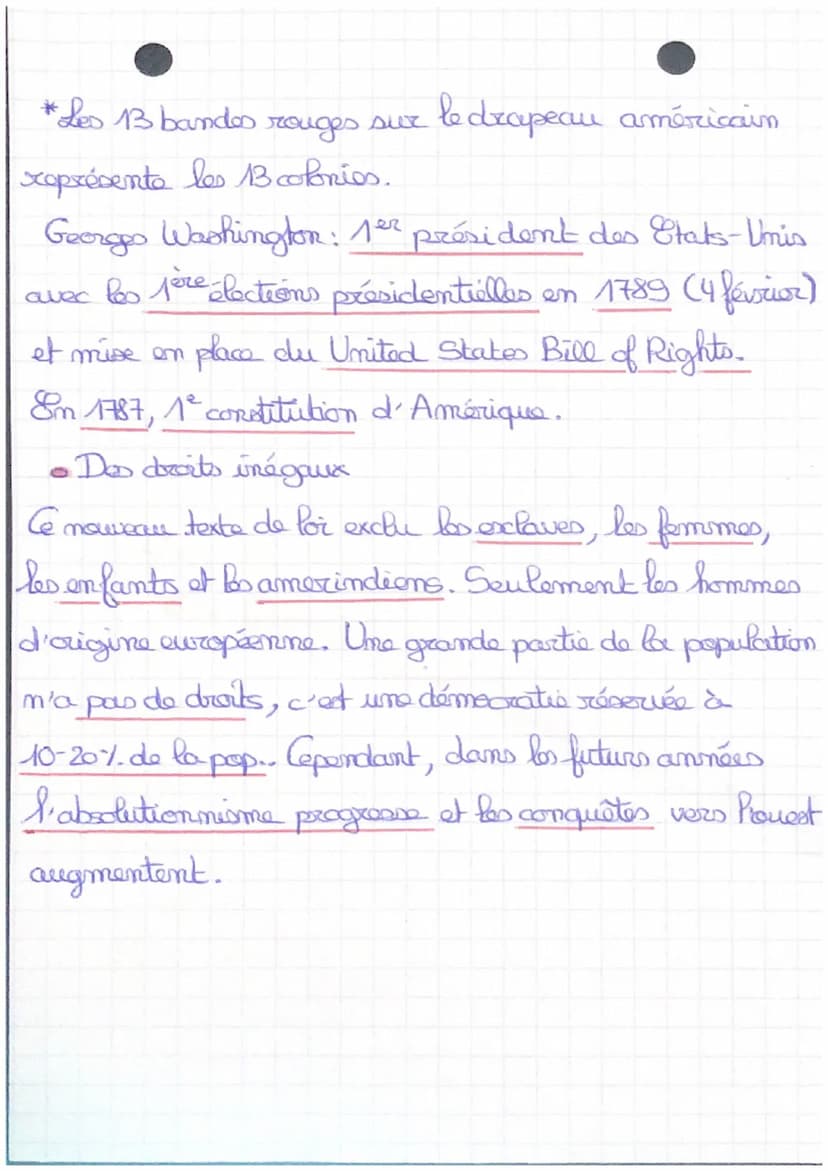 *Les 13 bandes rouges sur le drapeau américain
représente les 13 colonies.
Georges Washington : 1er président des Etats-Unis
avec les 1ère élections présidentielles en 1789 (4 février)
et mise en place du United States Bill of Rights.
En 1787, 1e constitution d'Amérique.
• Des droits inégaux
Ce nouveau texte de loi exclu les esclaves, les femmes,
les enfants et les amerindiens. Seulement les hommes
d'origine européenne. Une grande partie de la population
n'a pas de droits, c'est une démocratie réservée à
10-20% de la pop.. Cependant, dans les futurs années
l'absolutionnisme progresse et les conquêtes vers l'ouest
augmentent.